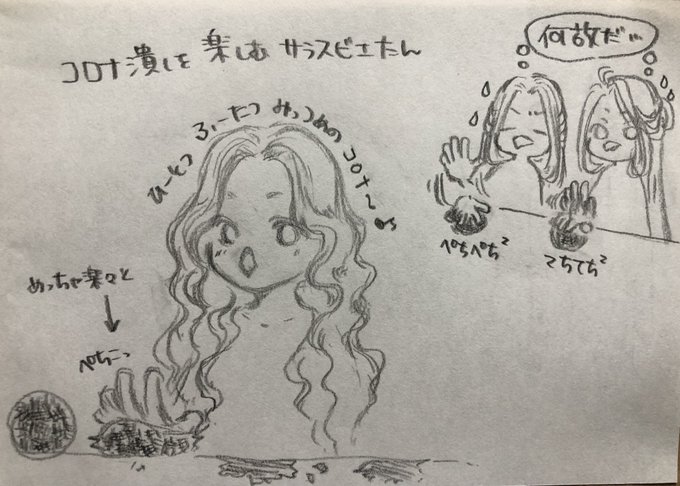 コロナ潰しを楽しむサラスビエたん
何故だ…
ひーとつ ふぃーたつ みっつめの コロナ〜♪
ぺちぺち²
てちてち²
めっちゃ楽々と
ぺちこっ